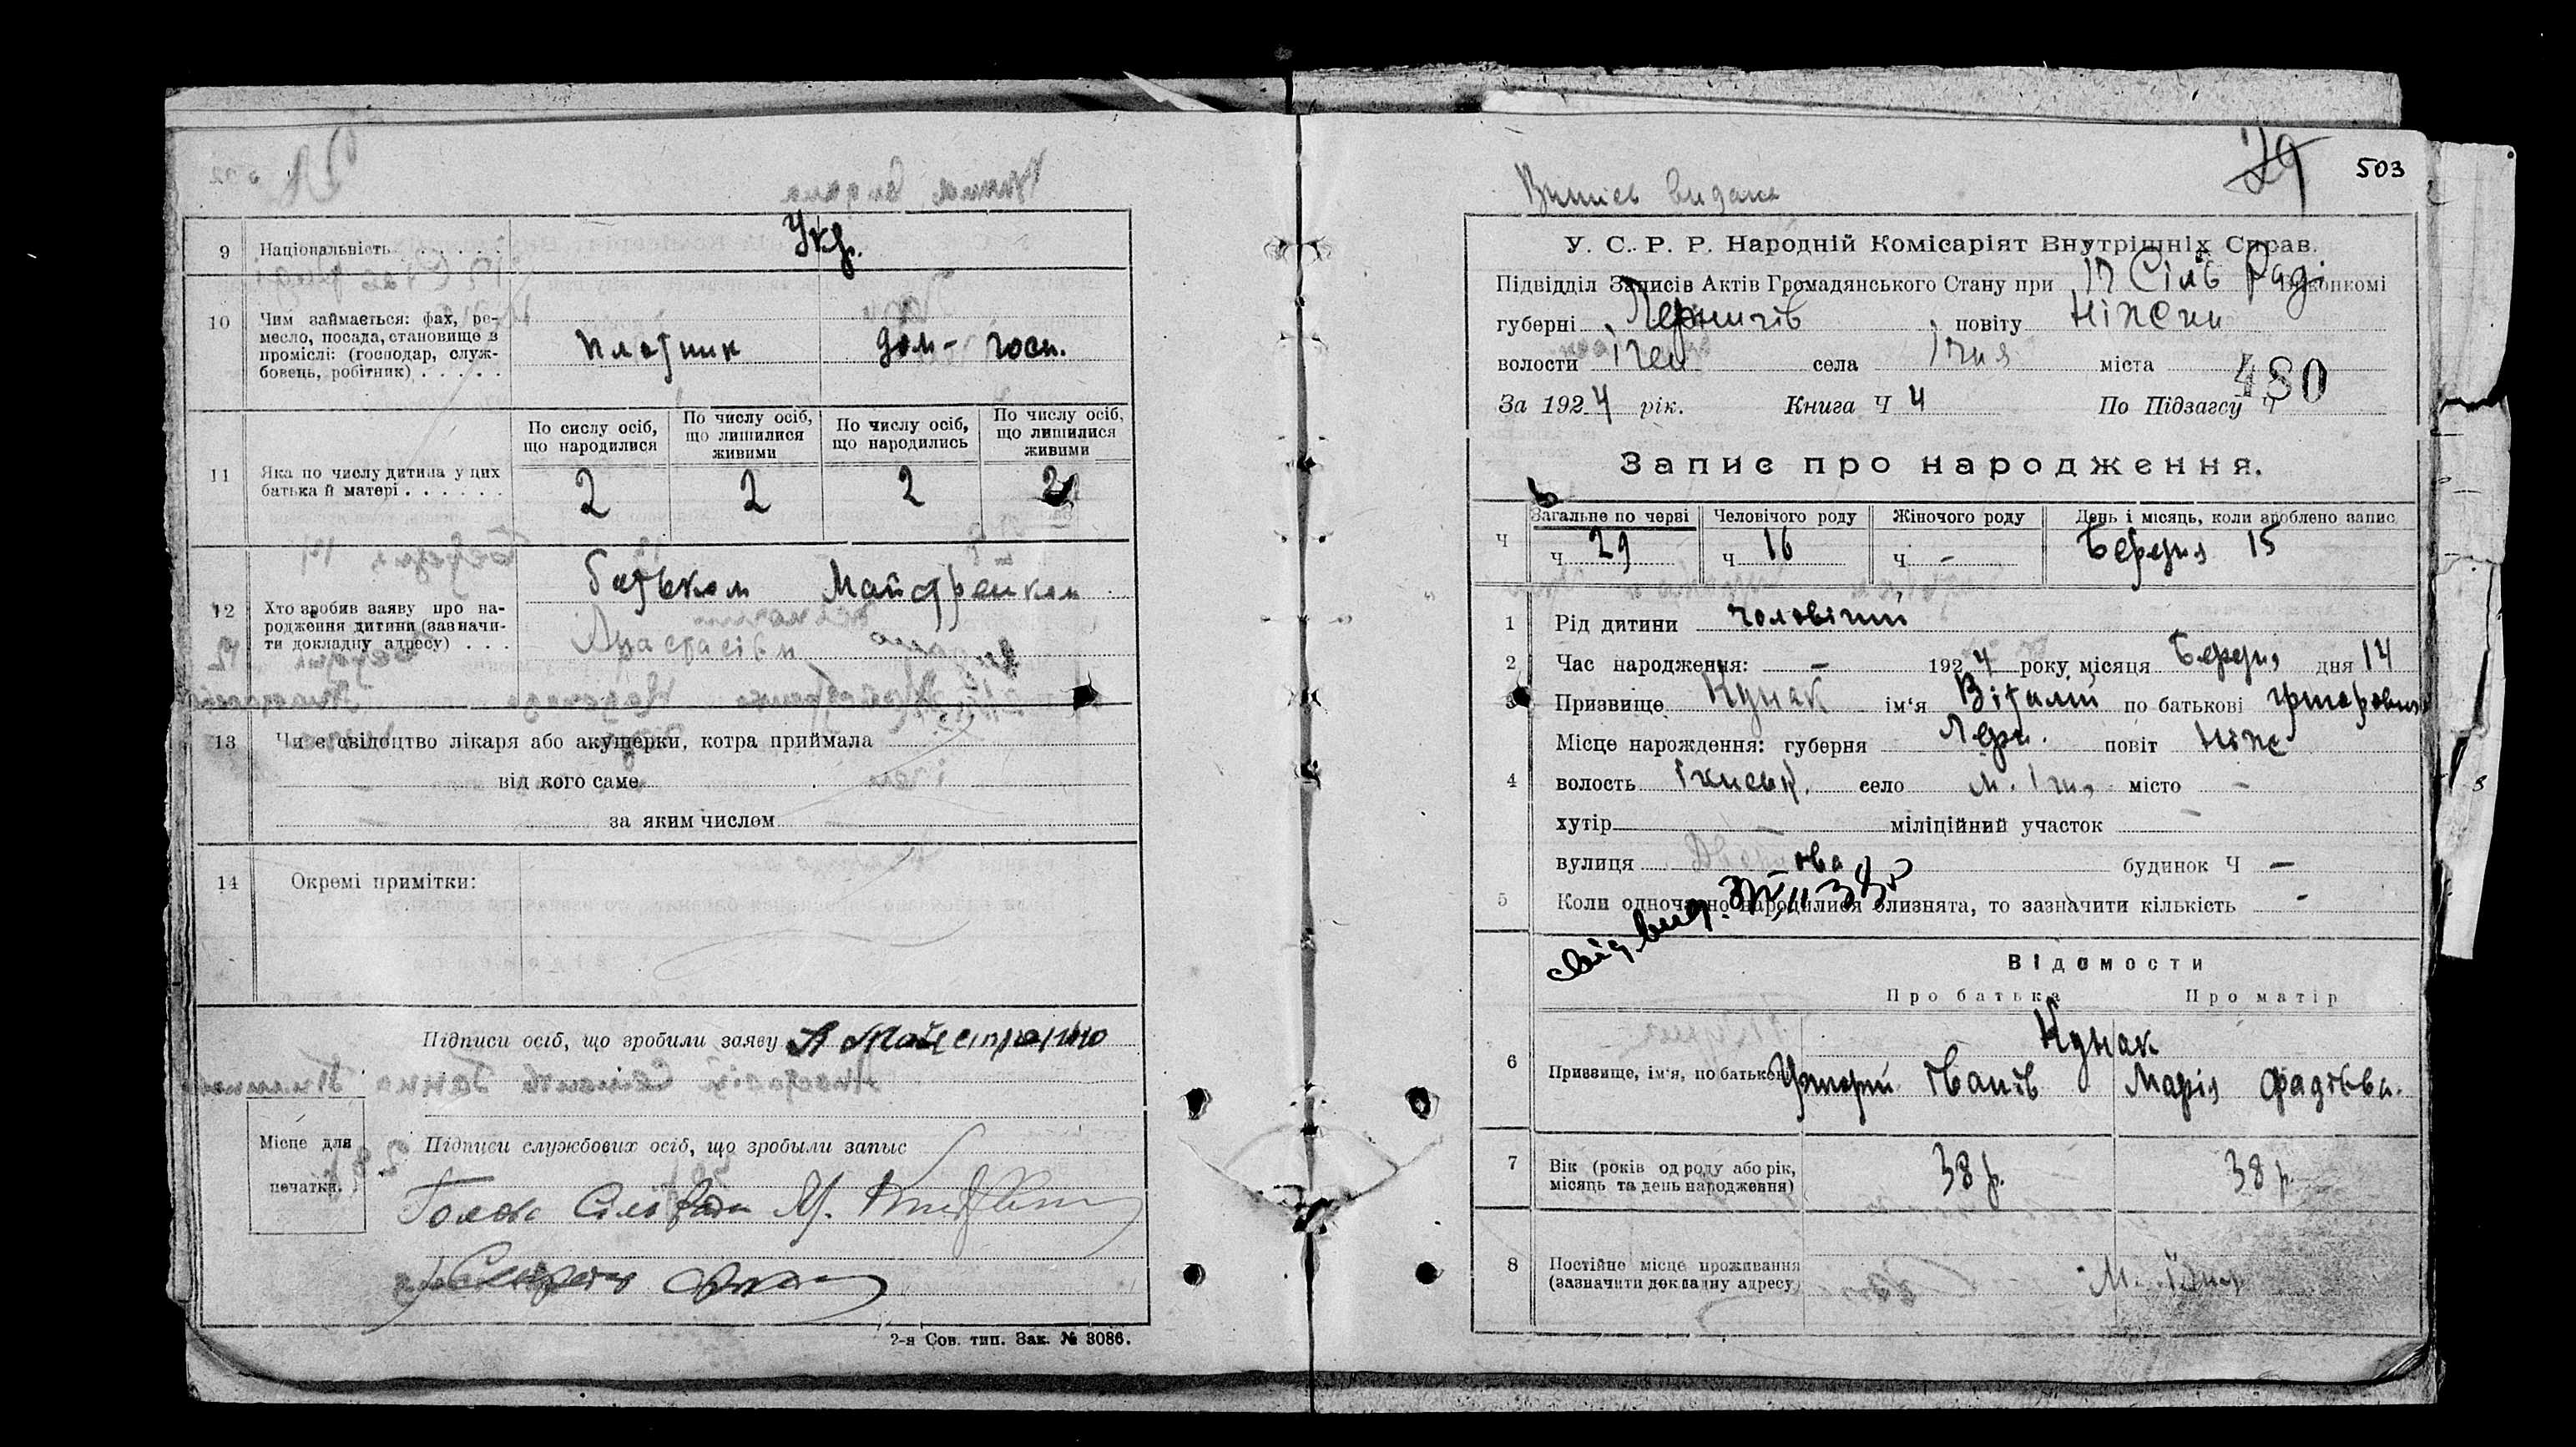 9 Національність Укр.
10 Чим займається: фах, ре-
месло, посада, становище в
проміслі: (господар, служ-
бовець, робітник) плотник дом- госп.
По сислу осіб, що народилися
По числу осіб, що лишилися живими
По числу осіб, що народились
По числу осіб, що лишилися живими
11 Яка по числу дитина у цих
батька й матері 2 2 2 2
12 Хто зробив заяву про на-
родження дитини (зазначи-
ти докладну адресу)
батьком Майстренком
13 Чи є свідоцтво лікаря або акушерки, котра приймала
від кого саме
за яким числом
14 Окремі примітки:
Підписи осіб, що зробили заяву
Місце для
печатки.
Підписи службових осіб, що зробыли запыс
Голова Сільради
Секретар
2-я Сов. тип. Зак. № 3086.
29 503
Выпись видана
У. С. Р. Р. Народній Комісаріят Внутрішніх Справ.
Підвідділ Записів Актів Громадянського Стану при Сіль Раді Виконкомі
губерні Чернигів повіту Ніжени
волости Ічен села Ічня міста
За 1924 рік. Книга Ч 4 По Підзагсу Ч 480
Запис про народження.
Загальне по черві Человічого роду Жіночого роду День і місяць, коли зроблено запис
Ч Ч 29 Ч 16 Ч - Березня 15
1 Рід дитини чоловічий
2 Час народження: - 1924 року місяця Березня дня 14
3 Призвище Кунак ім'я Віталій по батькові Григорович
Місце нарождення: губерня Черн. повіт Ніж
4 волость село м. Ічня місто -
хутір міліційний участок -
вулиця будинок Ч -
5 Коли одночасно народилися близнята, то зазначити кількість -
Відомости
Про батька Про матір
Кунак
6 Призвище, ім'я, по батькові Григорій Іванів Марія Фадѣєва.
7 Вік (років од роду або рік,
місяць та день народження) 38 р. 38 р.
8 Постійне місце проживання
(зазначити докладну адресу)